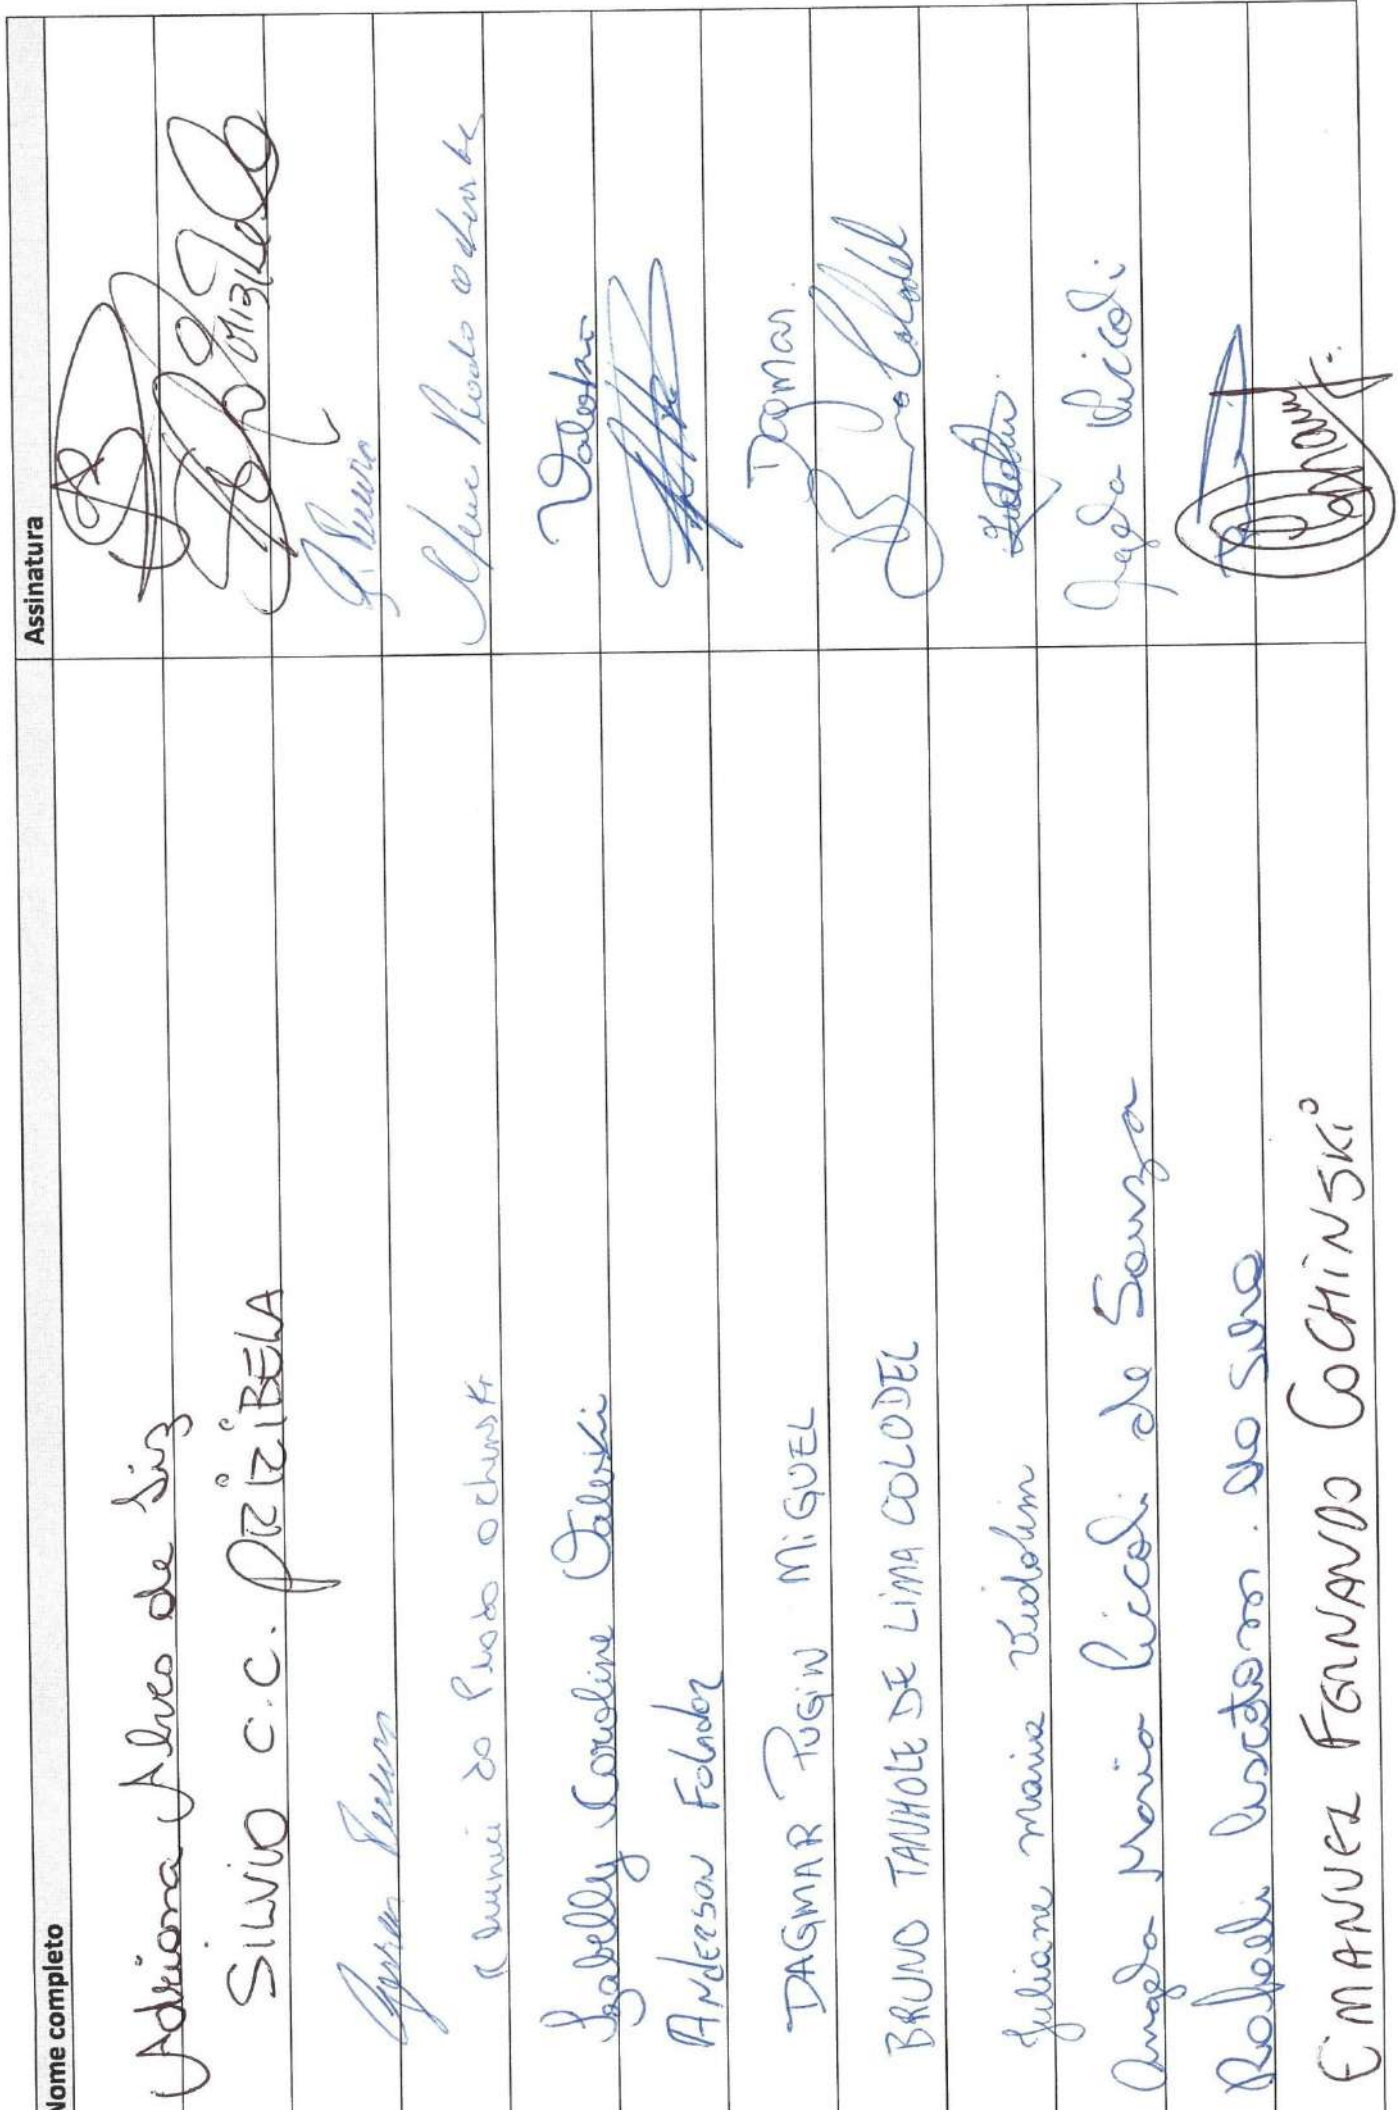 Nome completo Assinatura
Adriana Alves de Liz
SILVIO C.C. PRZIZIBELA
Pereira G. Pereira
do Prado ochinski
Izabelly Caroline Valeski Valeski
ANDERSON Folador
DAGMAR PUGIN MIGUEL Dagmar.
BRUNO TANHOLE DE LIMA COLODEL Bruno Colodel
Juliane Maria Vidolim Vidolim.
Angela Maria Piccoli de Souza Angela Piccoli
Rafaelli da Silva
EMANUEL FERNANDO COCHINSKI